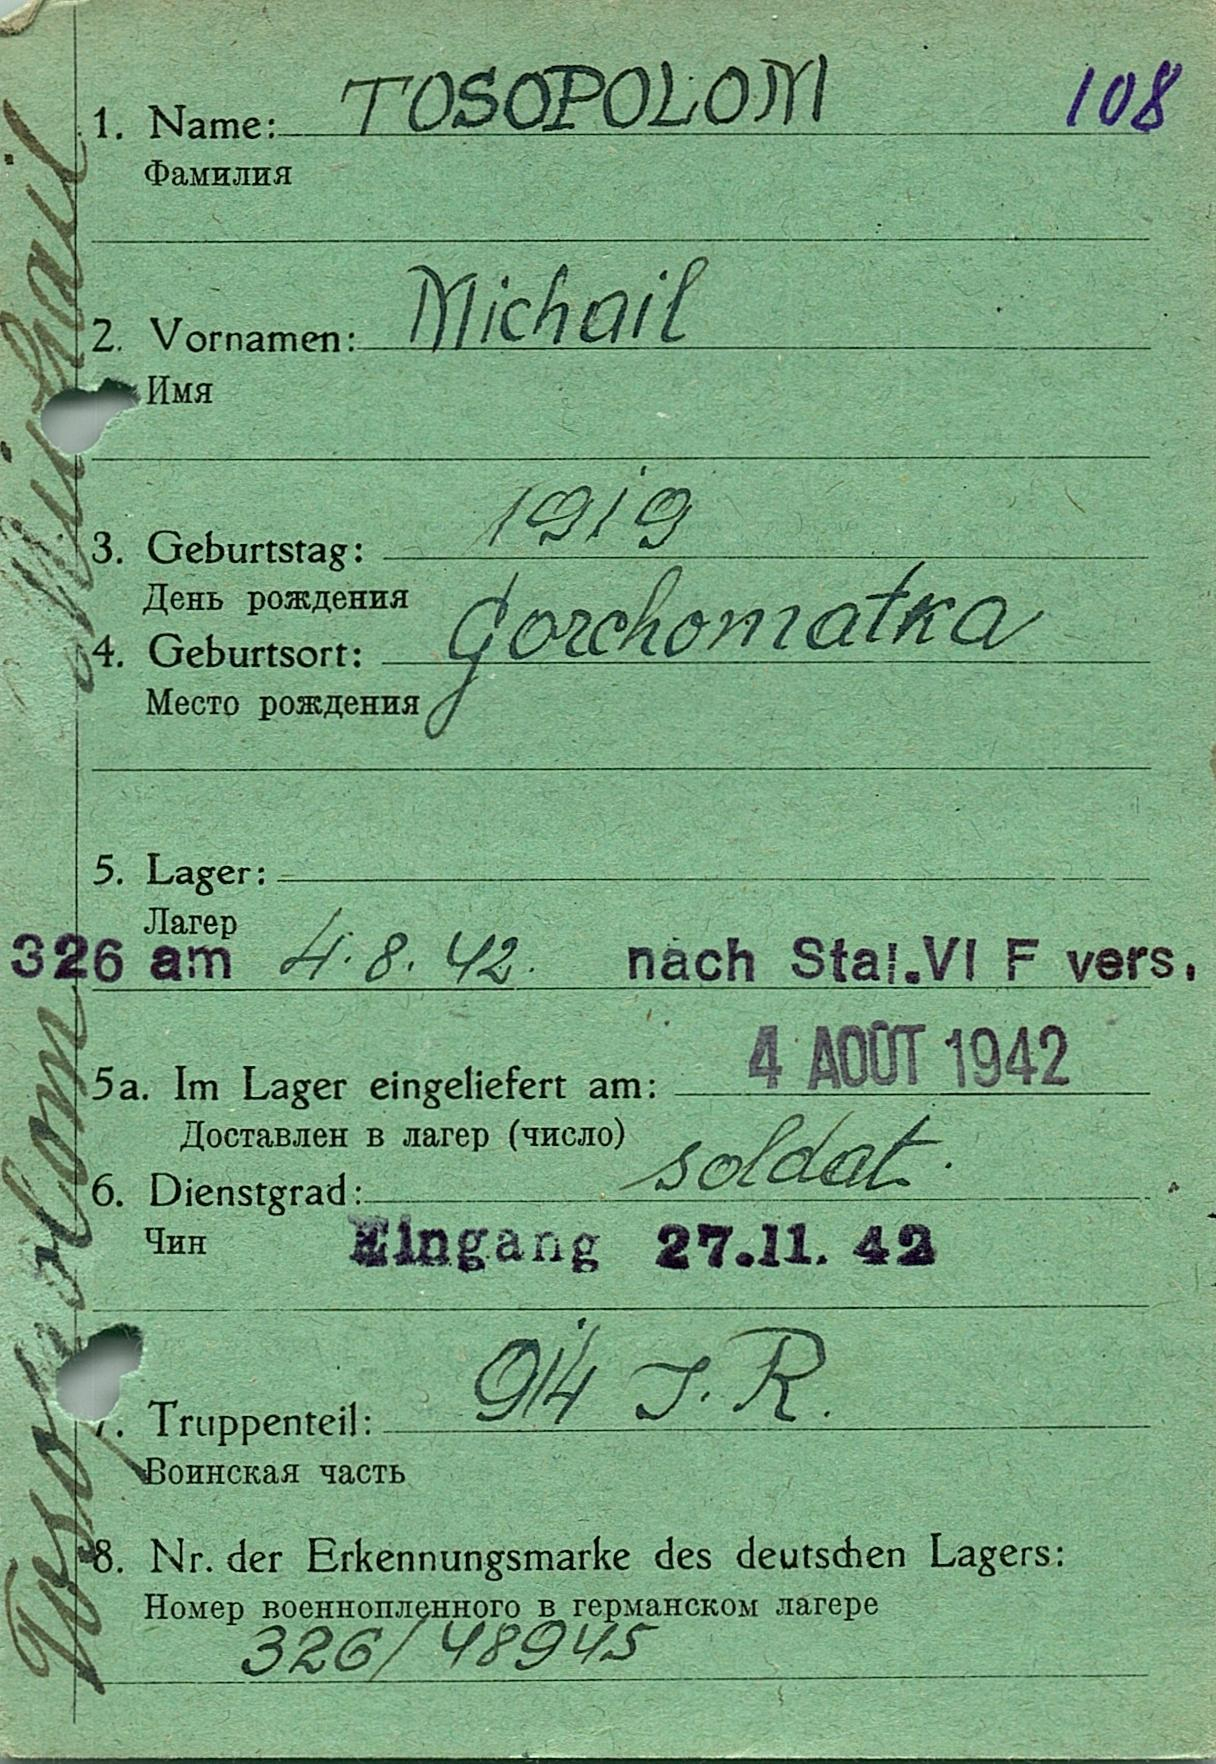 1. Name: TOSOPOLOM 108
Фамилия
2. Vornamen: Michail
Имя
3. Geburtstag: 1919
День рождения
4. Geburtsort: Gorchomatka
Место рождения
5. Lager:
Лагер
326 am 4.8.42. nach Stal.VI F vers.
4 AOÛT 1942
5a. Im Lager eingeliefert am:
Доставлен в лагер (число)
6. Dienstgrad: soldat.
Чин
Eingang 27.11.42
7. Truppenteil: 914 J.R.
Воинская часть
8. Nr. der Erkennungsmarke des deutschen Lagers:
Номер военнопленного в германском лагере
326/48945
Tosopolom Michail